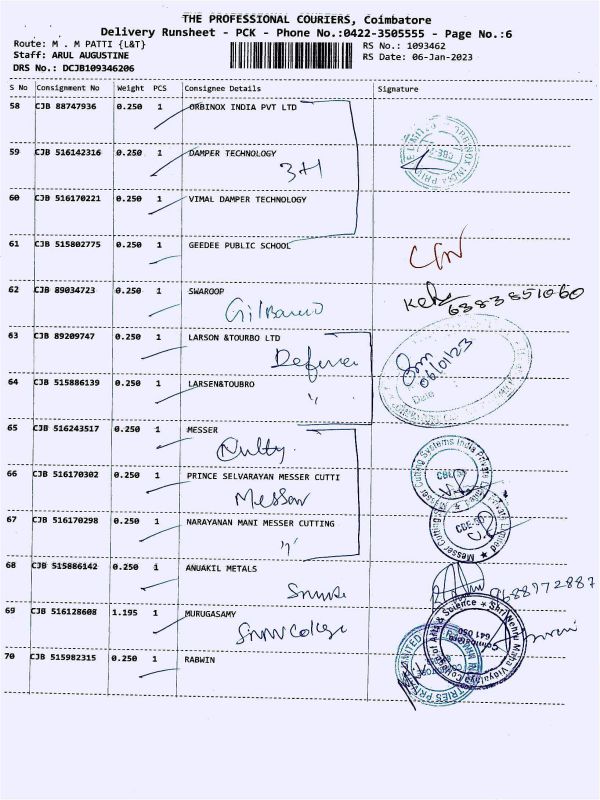 THE PROFESSIONAL COURIERS, Coimbatore
Delivery Runsheet - PCK - Phone No.:0422-3505555 - Page No.:6
Route: M . M PATTI {L&T}
Staff: ARUL AUGUSTINE
DRS No.: DCJB109346206
RS No.: 1093462
RS Date: 06-Jan-2023
S No Consignment No Weight PCS Consignee Details Signature
58 CJB 88747936 0.250 1 ORBINOX INDIA PVT LTD
59 CJB 516142316 0.250 1 DAMPER TECHNOLOGY
3+1
60 CJB 516170221 0.250 1 VIMAL DAMPER TECHNOLOGY
61 CJB 515802775 0.250 1 GEEDEE PUBLIC SCHOOL
62 CJB 89034723 0.250 1 SWAROOP
6383851060
63 CJB 89209747 0.250 1 LARSON &TOURBO LTD
06/01/23
Date
64 CJB 515886139 0.250 1 LARSEN&TOUBRO
"
65 CJB 516243517 0.250 1 MESSER
Messer Cutting Systems India Private Limited
66 CJB 516170302 0.250 1 PRINCE SELVARAYAN MESSER CUTTI
Messer
67 CJB 516170298 0.250 1 NARAYANAN MANI MESSER CUTTING
"
68 CJB 515886142 0.250 1 ANUAKIL METALS
9688972887
69 CJB 516128608 1.195 1 MURUGASAMY
SNMV College
70 CJB 515982315 0.250 1 RABWIN